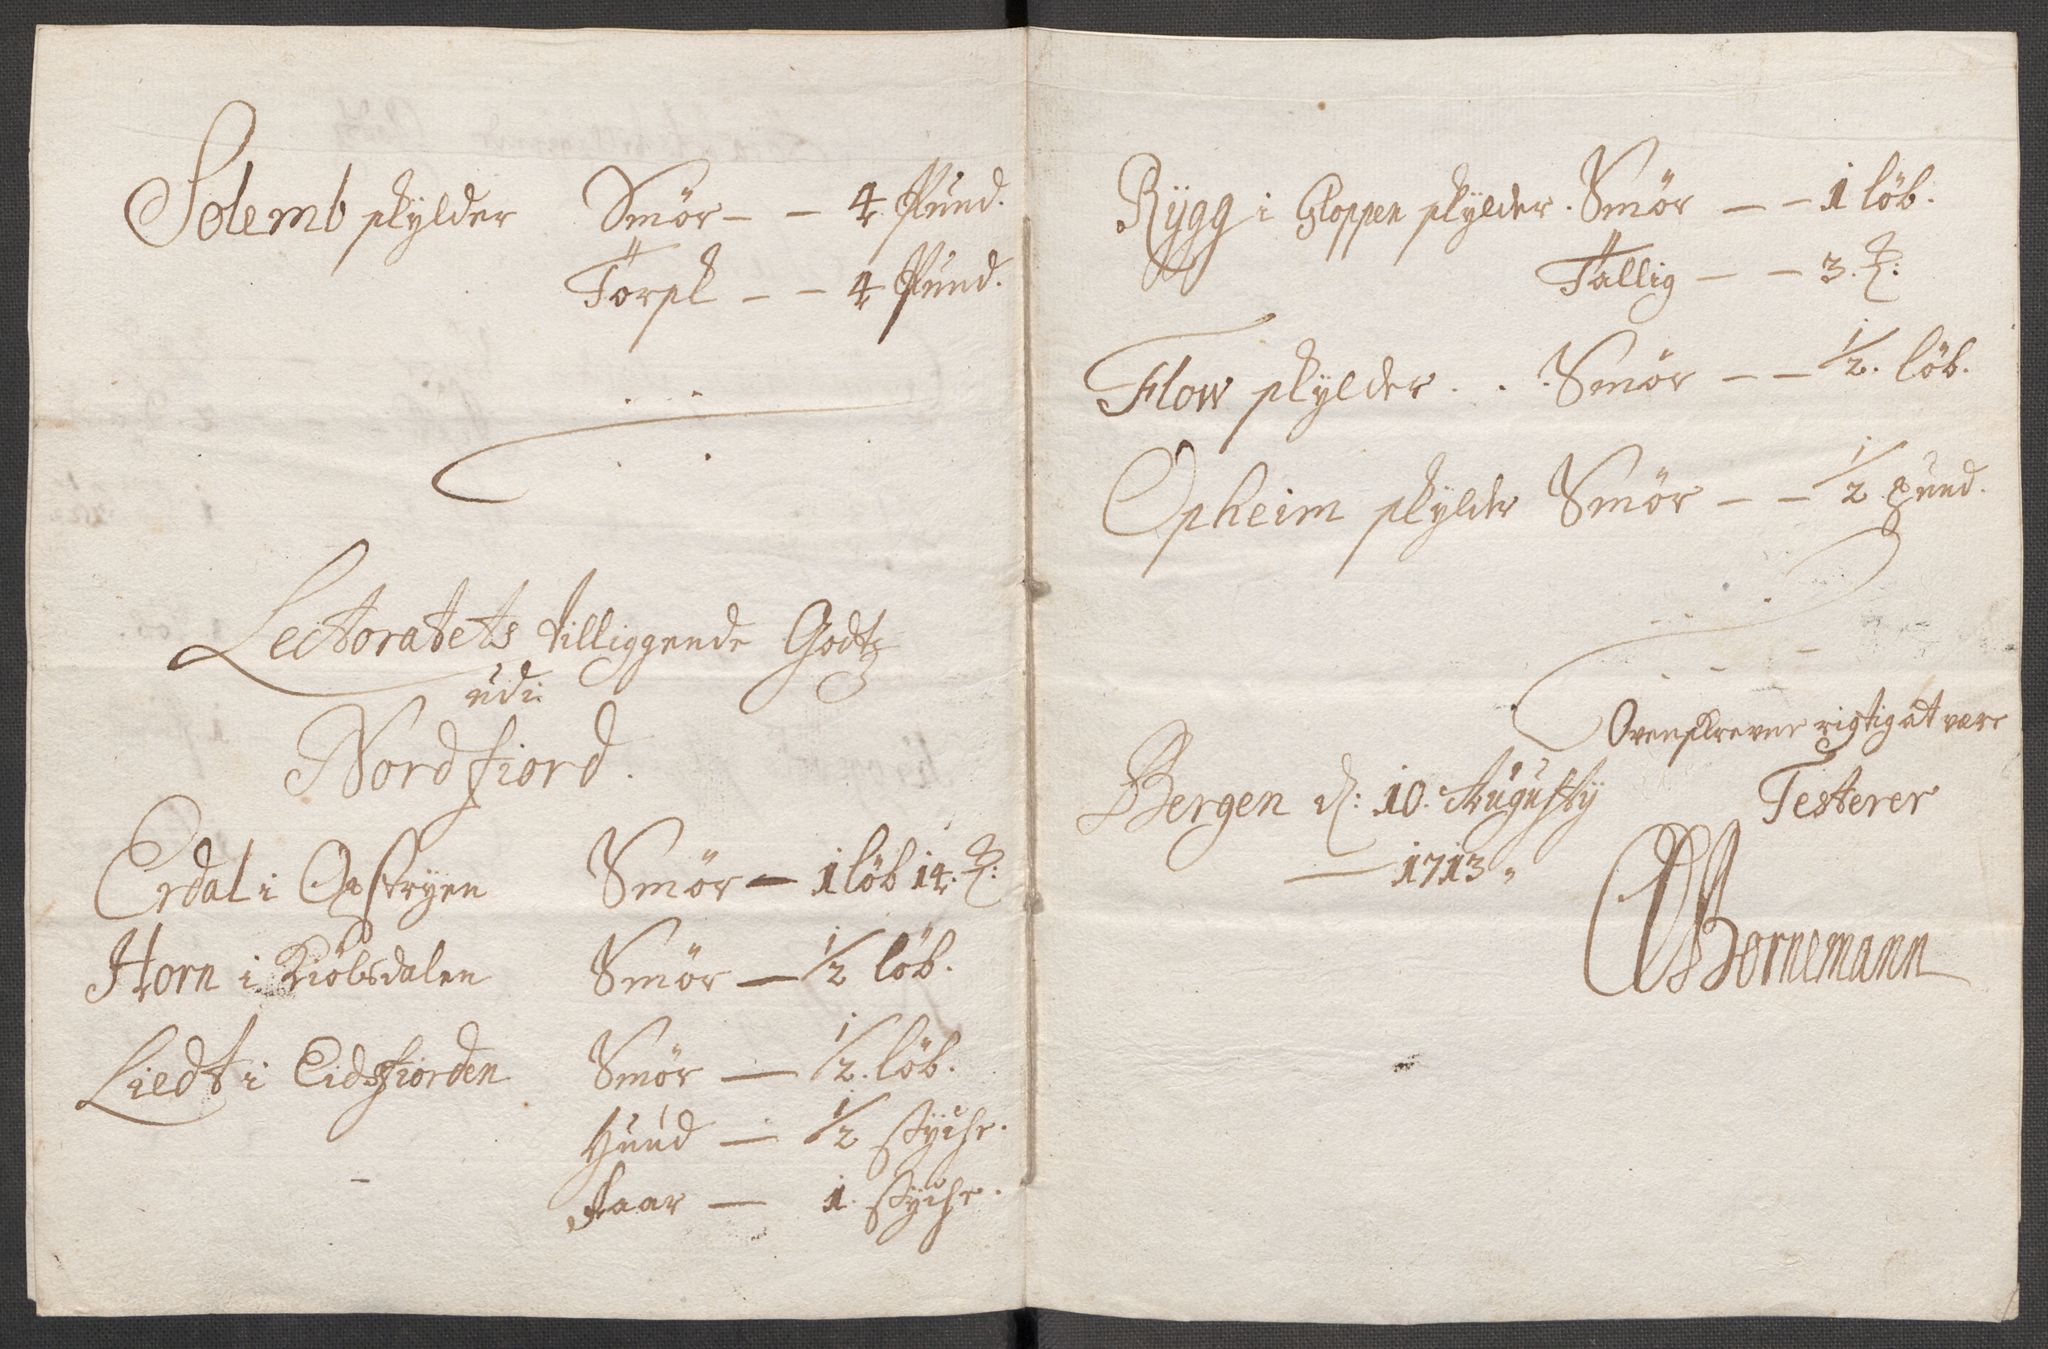 Solemb skylder Smör – – 4 Pund.
Torsk – – 4 Pund.
Lectoratets tilliggende Godtz
udi
Nordfiord.
Erdal i Opstryen Smör – 1 löb 14. ℔:
Horn i Kiölsdalen Smör – 1/2 löb.
Liedt i Eidsfiorden Smör – 1/2. löb.
Huud – 1/2 stÿche.
Faar – 1. stÿche.
Rÿgg i Gloppen skylder. Smör – – 1 löb.
Tallig – – 3. ℔:
Flow skylder . . Smör – – 1/2. löb.
Opheim skylder Smör – – 1/2 pund.
Ovenskrevne rigtig at være
Bergen d: 10. Augusty Testerer
1713.
Bornemann